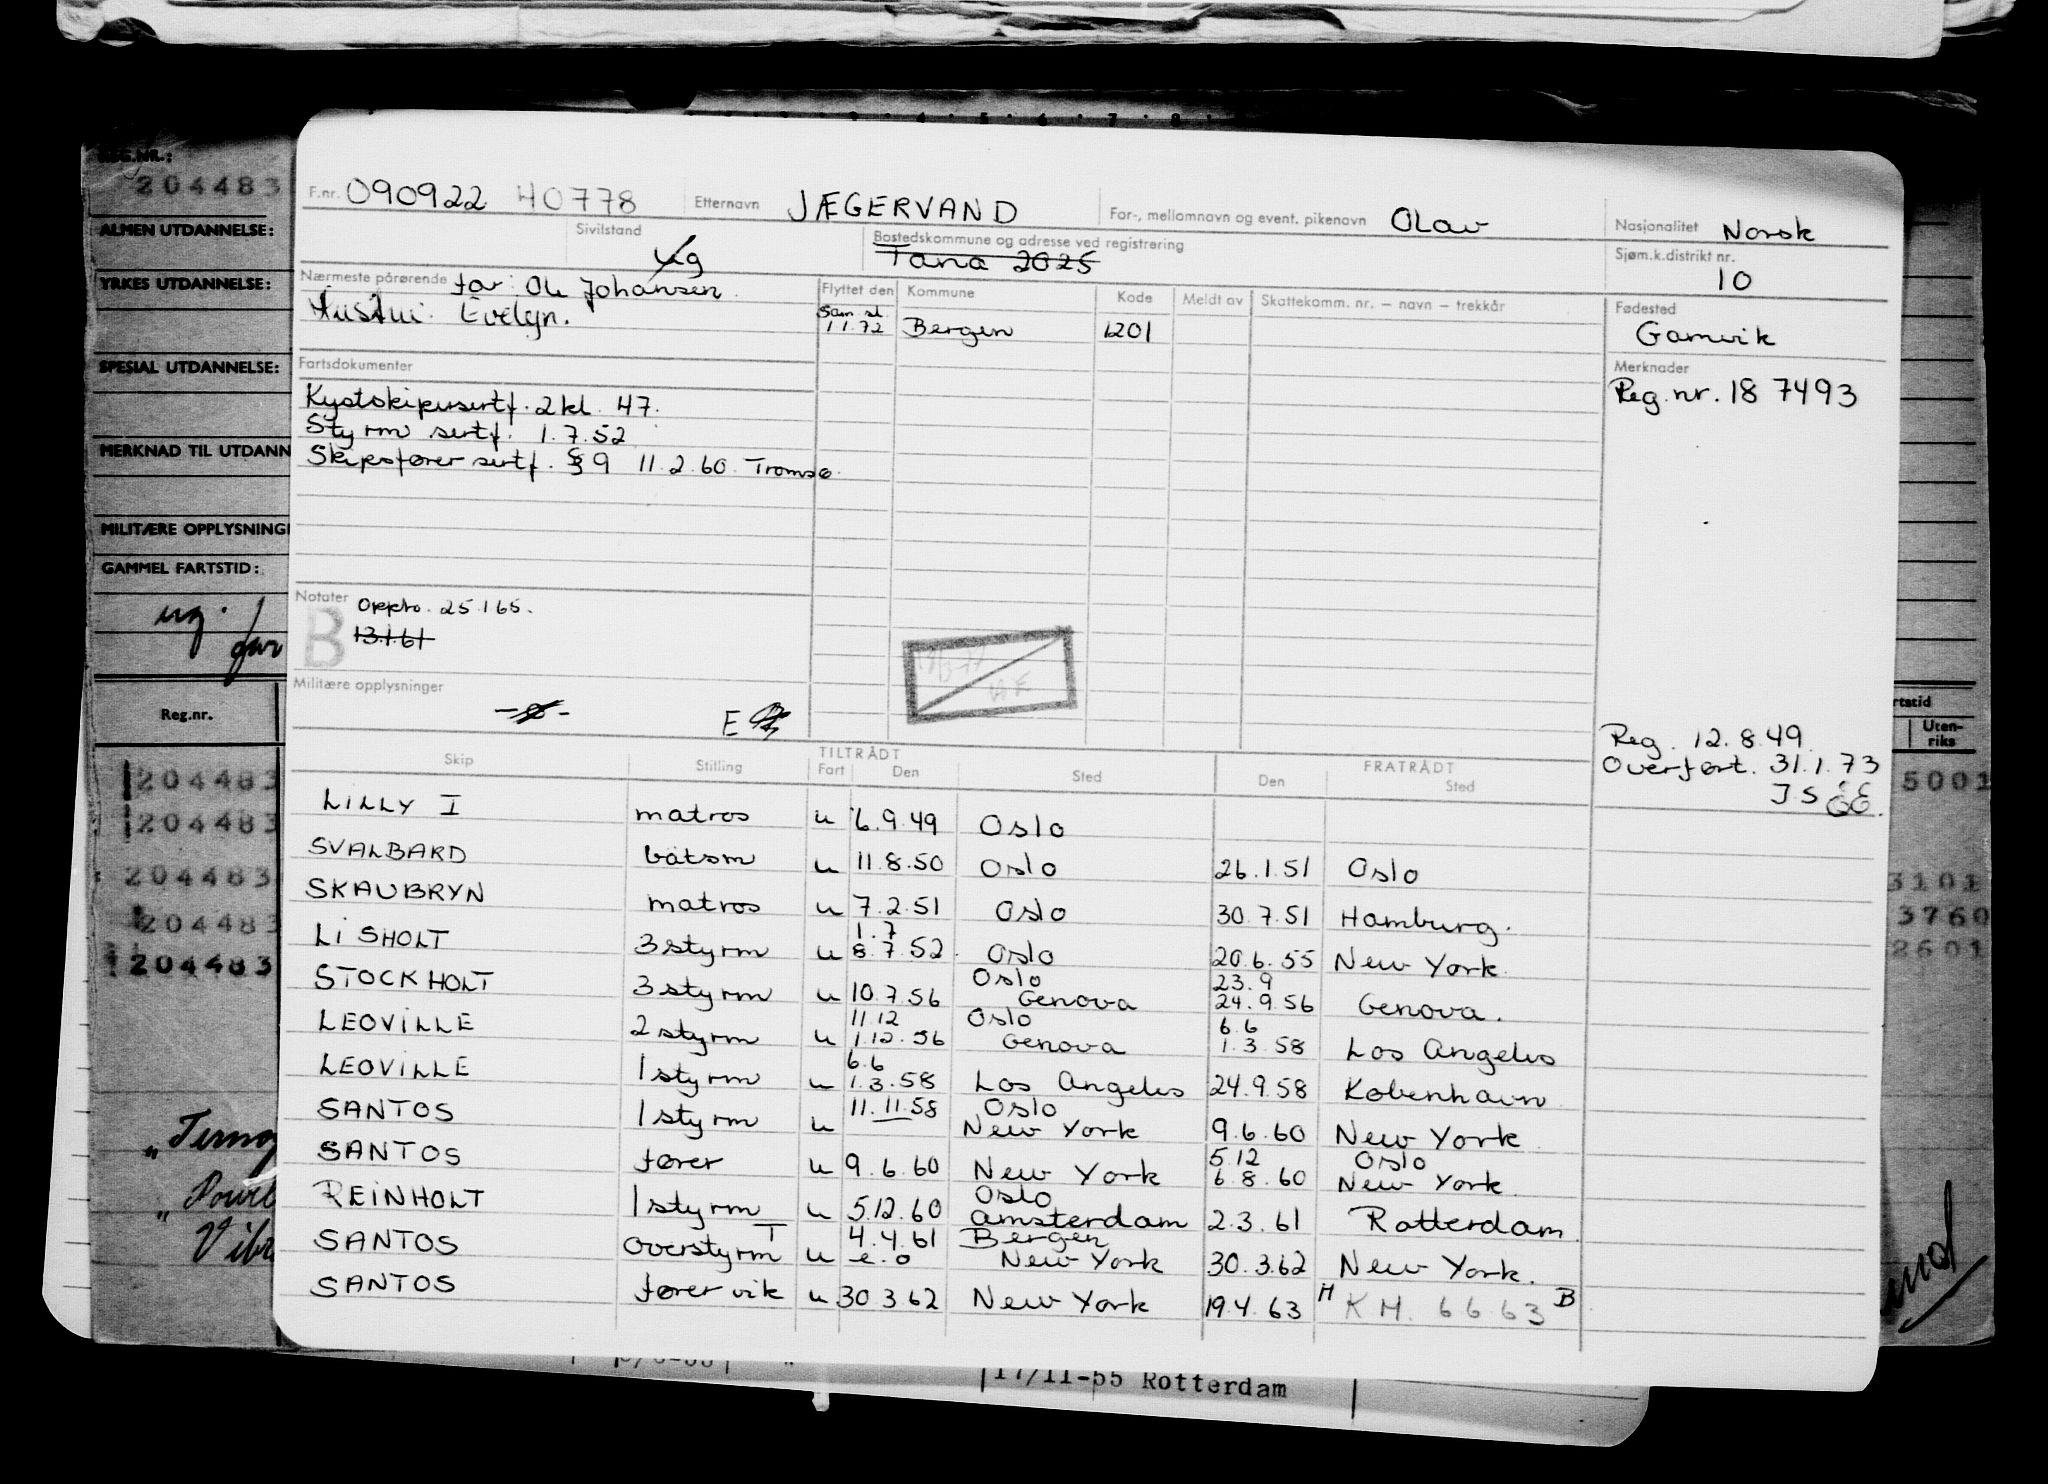 REG.NR.:
204483
ALMEN UTDANNELSE:
YRKES UTDANNELSE:
SPESIAL UTDANNELSE:
MERKNAD TIL UTDANN
MILITÆRE OPPLYSNING
GAMMEL FARTSTID:
ug.
Reg.nr.
204483
204483
204483
204483
204483
F.nr. 090922 40778 Etternavn JÆGERVAND For-, mellomnavn og event. pikenavn Olav Nasjonalitet Norsk
Sivilstand ug Bostedskommune og adresse ved registrering Tana 2025 Sjøm.k.distrikt nr. 10
Nærmeste pårørende far: Ole Johansen.
Hustru: Evelyn.
Flyttet den Kommune Kode Meldt av Skattekomm. nr. – navn – trekkår Fødested
Sam st
1.1.72 Bergen 1201 Gamvik
Fartsdokumenter Merknader
Kystskipersertf. 2 kl. 47. Reg. nr. 18 7493
Styrm sertf. 1.7.52
Skipsfører sertf. § 9 11.2.60. Tromsø.
Notater Oppto. 25.1 65.
B 13.1.61
Militære opplysninger
E
Reg. 12.8.49
Overført. 31.1.73
J.S
TILTRÅDT FRATRÅDT
Skip Stilling Fart Den Sted Den Sted
LILLY I matros u 6.9.49 Oslo
SVALBARD båtsm u 11.8.50 Oslo 26.1.51 Oslo
SKAUBRYN matros u 7.2.51 Oslo 30.7.51 Hamburg.
1.7
LISHOLT 3 styrm u 8.7.52. Oslo 20.6.55 New York.
Oslo 23.9
STOCKHOLT 3 styrm u 10.7.56 Genova 24.9.56 Genova.
11.12 Oslo 6.6
LEOVILLE 2 styrm u 1.12.56 Genova 1.3.58 Los Angeles
6.6
LEOVILLE 1 styrm u 1.3.58 Los Angeles 24.9.58 København
11.11.58 Oslo
SANTOS 1 styrm u New York 9.6.60 New York.
5.12 Oslo
SANTOS fører u 9.6.60 New York 6.8.60 New York.
Oslo
REINHOLT 1 styrm u 5.12.60 Amsterdam 2.3.61 Rotterdam.
T 4.4.61 Bergen
SANTOS overstyrm u e.o New York 30.3.62 New York.
SANTOS fører vik u 30 3 62 New York 19.4.63 H K M. 6 6 6 3 B
rtstid
Uten-
riks
5001
3101
3760
2601
17/11-55 Rotterdam